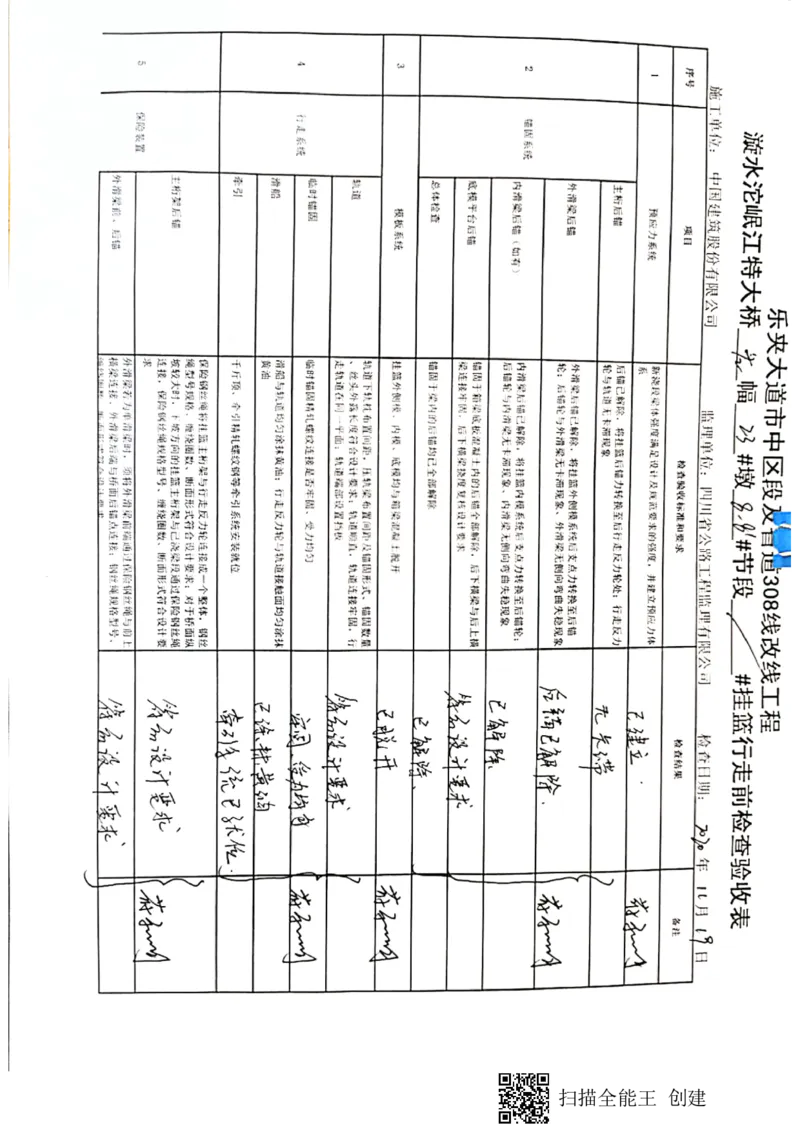 乐夹大道市中区段及省道308线改线工程
漩水沱岷江特大桥 幅 23 #墩 8,8' #节段 #挂篮行走前检查验收表
施工单位：中国建筑股份有限公司 监理单位：四川省公路工程监理有限公司 检查日期：2020年11月19日
序号 项目 检查验收标准和要求 检查结果 备注
1 预应力系统 新浇段梁体强度满足设计及规范要求的强度，并建立预应力体系 已建立.
2 锚固系统
主桁后锚 后锚已解除，将挂篮后锚力转换至后行走反力轮处；行走反力轮与轨道无卡滞现象 无卡滞
外滑梁后锚 外滑梁后锚已解除，将挂篮外侧模系统后支点力转换至后锚轮；后锚轮与外滑梁无卡滞现象、外滑梁无侧向弯曲失稳现象 后锚已解除.
内滑梁后锚（如有） 内滑梁后锚已解除，将挂篮内模系统后支点力转换至后锚轮；后锚轮与内滑梁无卡滞现象、内滑梁无侧向弯曲失稳现象 已解除.
底模平台后锚 锚固于箱梁底板混凝土内的后锚全部解除，后下横梁与后上横梁连接牢固，后下横梁挠度复核设计要求 符合设计要求
总体检查 锚固于梁内的后锚均已全部解除 已解除.
3 模板系统 挂篮外侧模、内模、底模均与箱梁混凝土脱开 已脱开
4 行走系统
轨道 轨道下轨枕布置间距、压轨梁布置间距及锚固形式、锚固数量、丝头外露长度符合设计要求；轨道顺直、轨道连接牢固，行走轨道在同一平面；轨道端部设置挡板 符合设计要求
临时锚固 临时锚固精轧螺纹连接是否牢固、受力均匀 牢固、受力均匀
滑船 滑船与轨道均匀涂抹黄油；行走反力轮与轨道接触面均匀涂抹黄油 已涂抹黄油
牵引 千斤顶、牵引精轧螺纹钢等牵引系统安装就位 牵引系统已就位.
5 保险装置
主桁架后锚 保险钢丝绳将挂篮主桁架与行走反力轮连接成一个整体，钢丝绳型号规格、缠绕圈数、断面形式符合设计要求；对于桥面纵坡较大时，下坡方向的挂篮主桁架与已浇梁段通过保险钢丝绳连接，保险钢丝绳规格型号、缠绕圈数、断面形式符合设计要求 符合设计要求
外滑梁前、后锚 外滑梁若为重滑梁时，须将外滑梁前端通过保险钢丝绳与前上横梁连接，外滑梁后端与桥面后锚点连接；钢丝绳规格型号、 符合设计要求
扫描全能王 创建